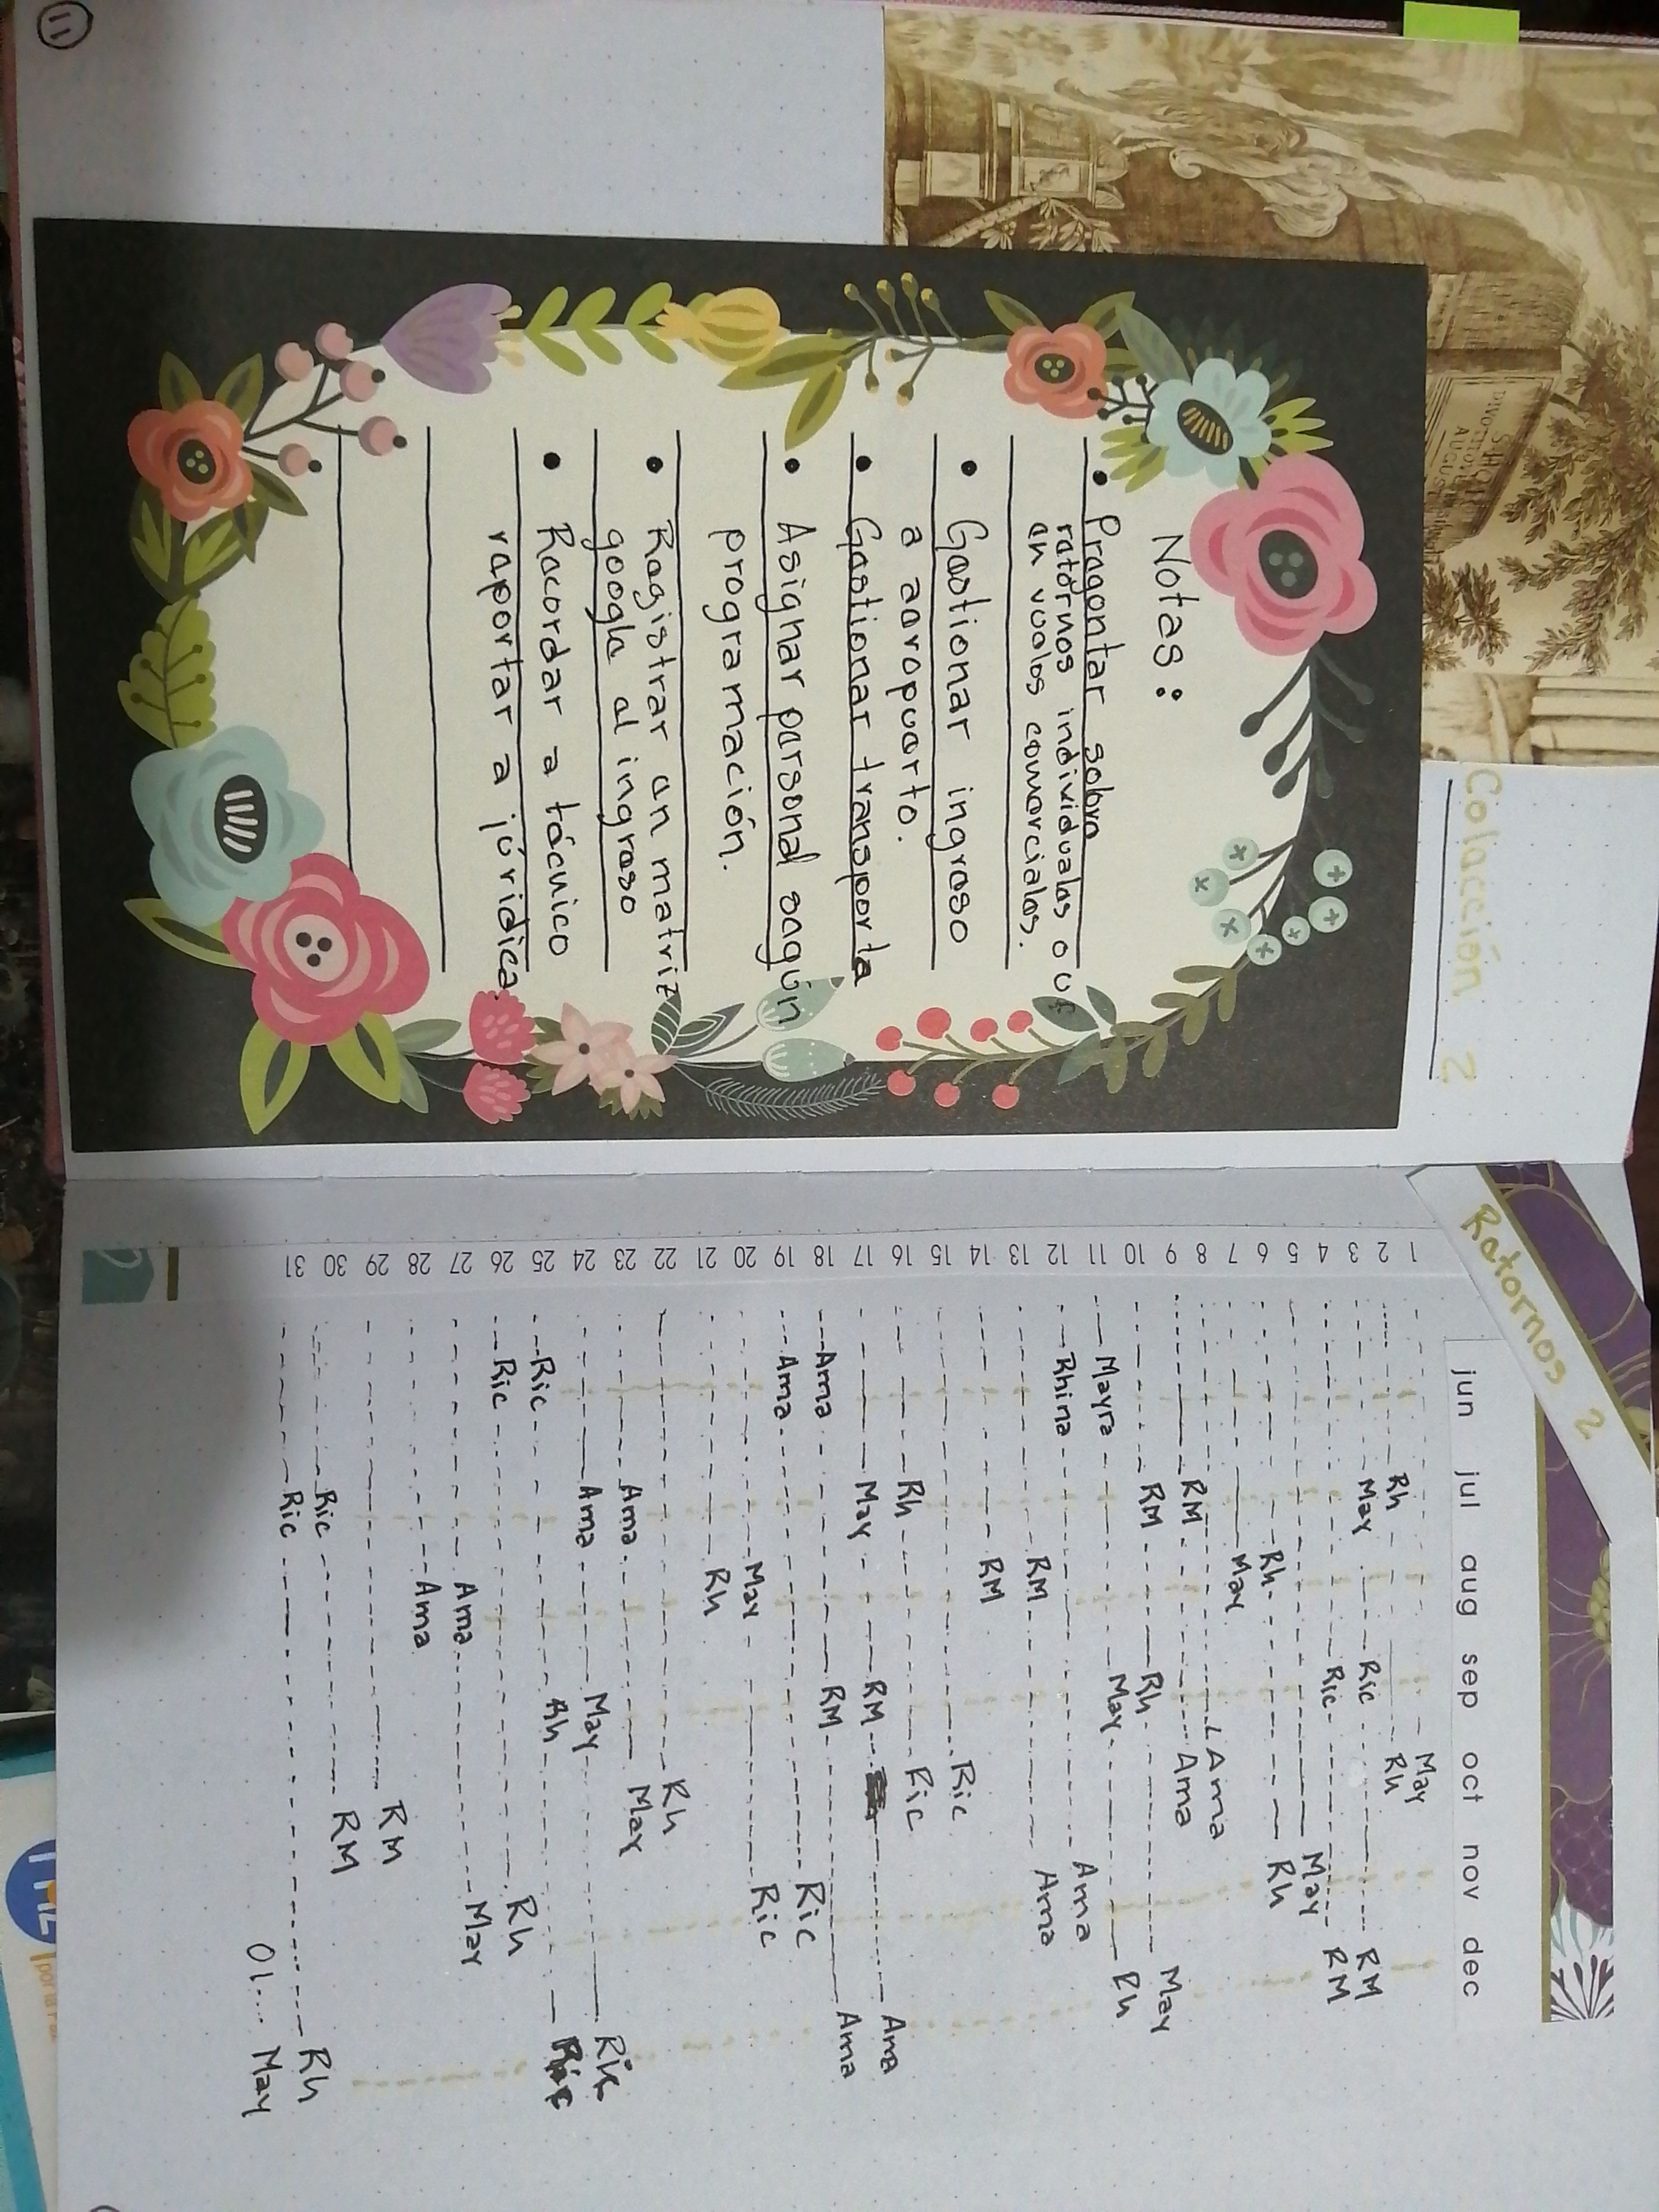 Colección 2
Notas:
• Pregontar sobre
retornos individuales ouf
en vuelos comerciales.
• Gestionar ingreso
a aeropuerto.
• Gestionar transporte
• Asignar personal según
programación.
• Registrar en matriz
google al ingreso
• Recordar a técnico
reportar a júridica
11
Retornos 2
jun jul aug sep oct nov dec
1 May
2 Rh Rh
3 May Ric RM
4 Ric RM
5 May
6 Rh Rh
7 May
8 Ama
9 RM Ama
10 RM Rh May
11 Mayra May Rh
12 Rhina Ama
13 RM Ama
14 RM
15 Ric
16 Rh Ric
17 May RM Ama
18 Ama RM Ama
19 Ama Ric
20 May Ric
21 Rh
22 Rh
23 Ama May
24 Ama May Ric
25 Ric Rh Ric
26 Ric Rh
27 Ama May
28 Ama
29 RM
30 Ric RM
31 Ric Rh
01.... May